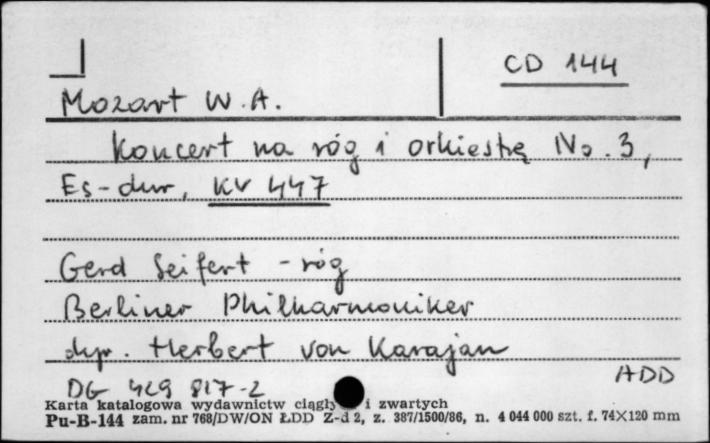 CD 144
Mozart W. A.
Koncert na róg i orkiestrę No. 3,
Es-dur, KV 447
Gerd Seifert - róg
Berliner Philharmoniker
dyr. Herbert von Karajan
ADD
DG 429 817-2
Karta katalogowa wydawnictw ciągły i zwartych
Pu-B-144 zam. nr 768/DW/ON ŁDD Z-d 2, z. 387/1500/86, n. 4 044 000 szt. f. 74×120 mm